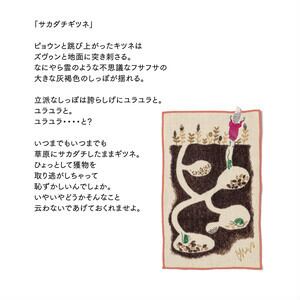 「サカダチギツネ」
ピョウンと跳び上がったキツネは
ズヴゥンと地面に突き刺さる。
なにやら雲のような不思議なフサフサの
大きな灰褐色のしっぽが揺れる。
立派なしっぽは誇らしげにユラユラと。
ユラユラと。
ユラユラ・・・・と?
いつまでもいつまでも
草原にサカダチしたままギツネ。
ひょっとして獲物を
取り逃がしちゃって
恥ずかしいんでしょか。
いやいやどうかそんなこと
云わないであげておくれませよ。